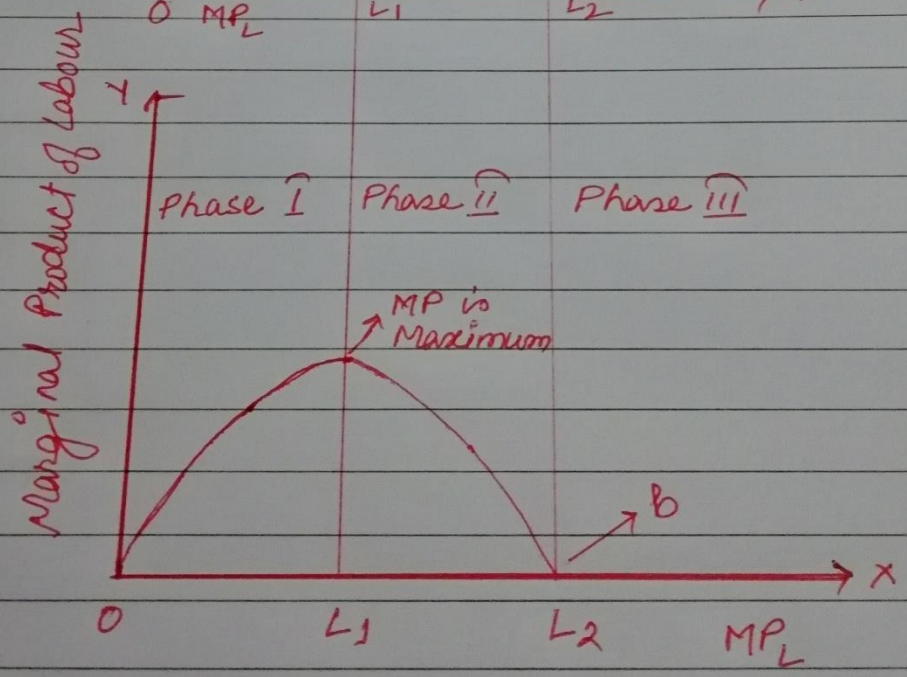 O MPL L1 L2
Y
Marginal Product of Labour
Phase I Phase II Phase III
MP is
Maximum
B
X
O L1 L2 MPL